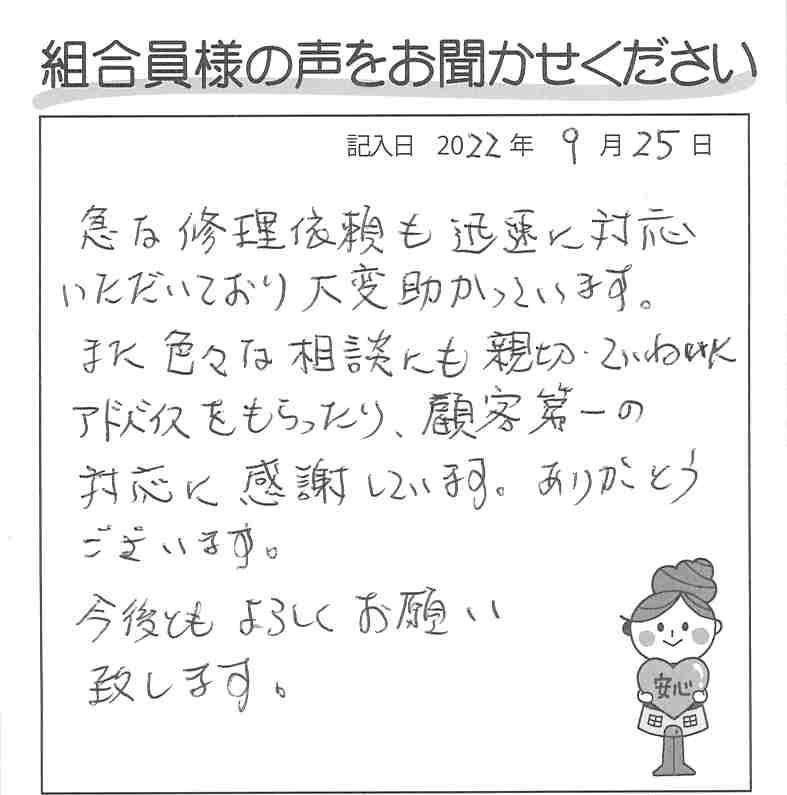 組合員様の声をお聞かせください
記入日 2022年 9月25日
急な修理依頼も迅速に対応
いただいており大変助かっています。
また色々な相談にも親切・ていねいに
アドバイスをもらったり、顧客第一の
対応に感謝しています。ありがとう
ございます。
今後ともよろしくお願い
致します。
安心